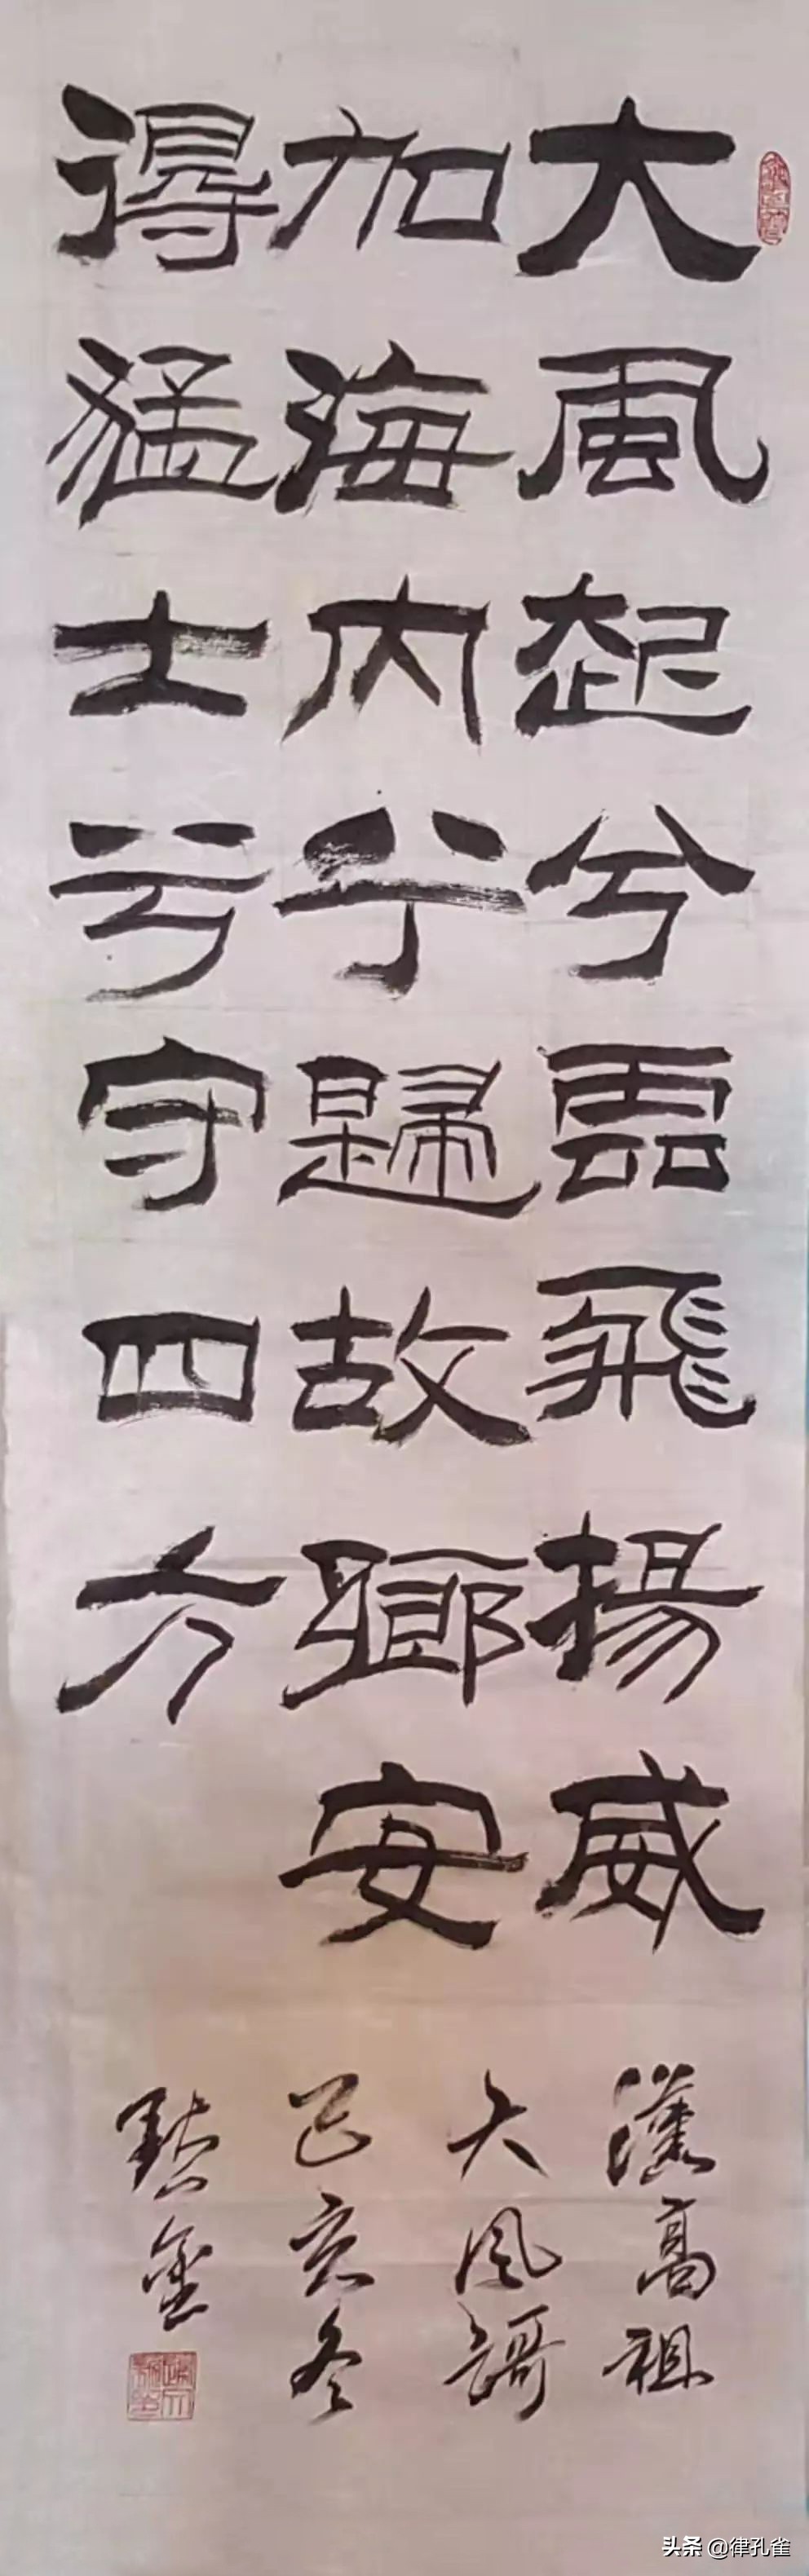 大風起兮雲飛揚威
加海内兮歸故鄉安
得猛士兮守四方
漢高祖
大風歌
己亥冬
头条 @律孔雀